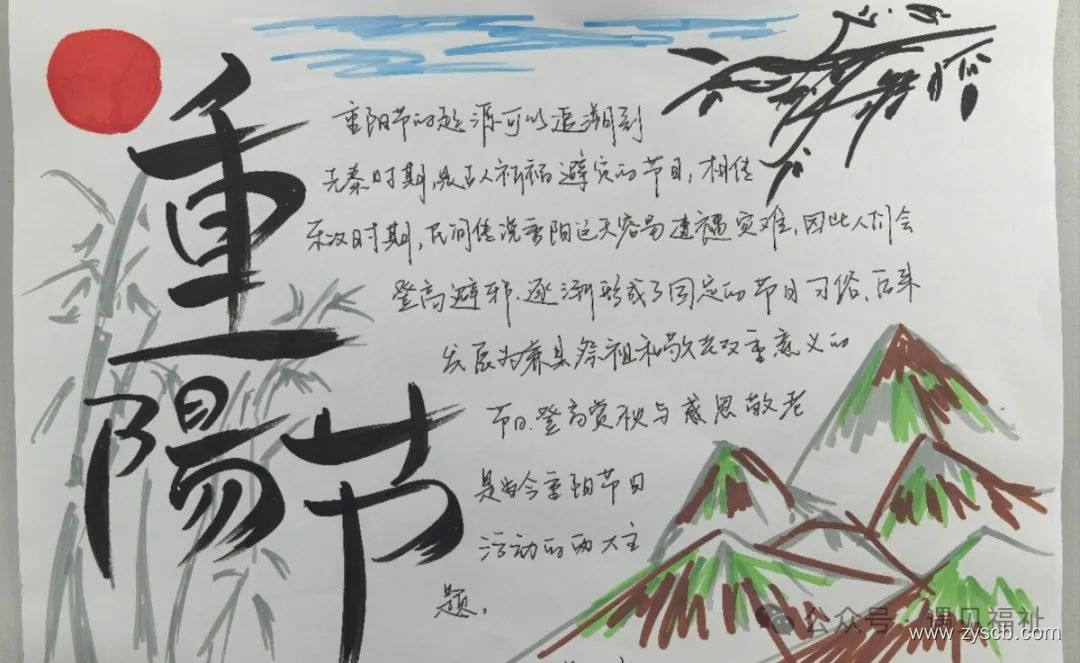 重陽节
重阳节的起源可以追溯到
先秦时期,是古人祈福避灾的节日,相传
东汉时期,民间传说重阳这天容易遭遇灾难,因此人们会
登高避邪.逐渐形成了固定的节日习俗,后来
发展为兼具祭祖和敬老双重意义的
节日.登高赏秋与感恩敬老
是当今重阳节日
活动的两大主
题。
公众号·遇见福祉
www.zyscb.com